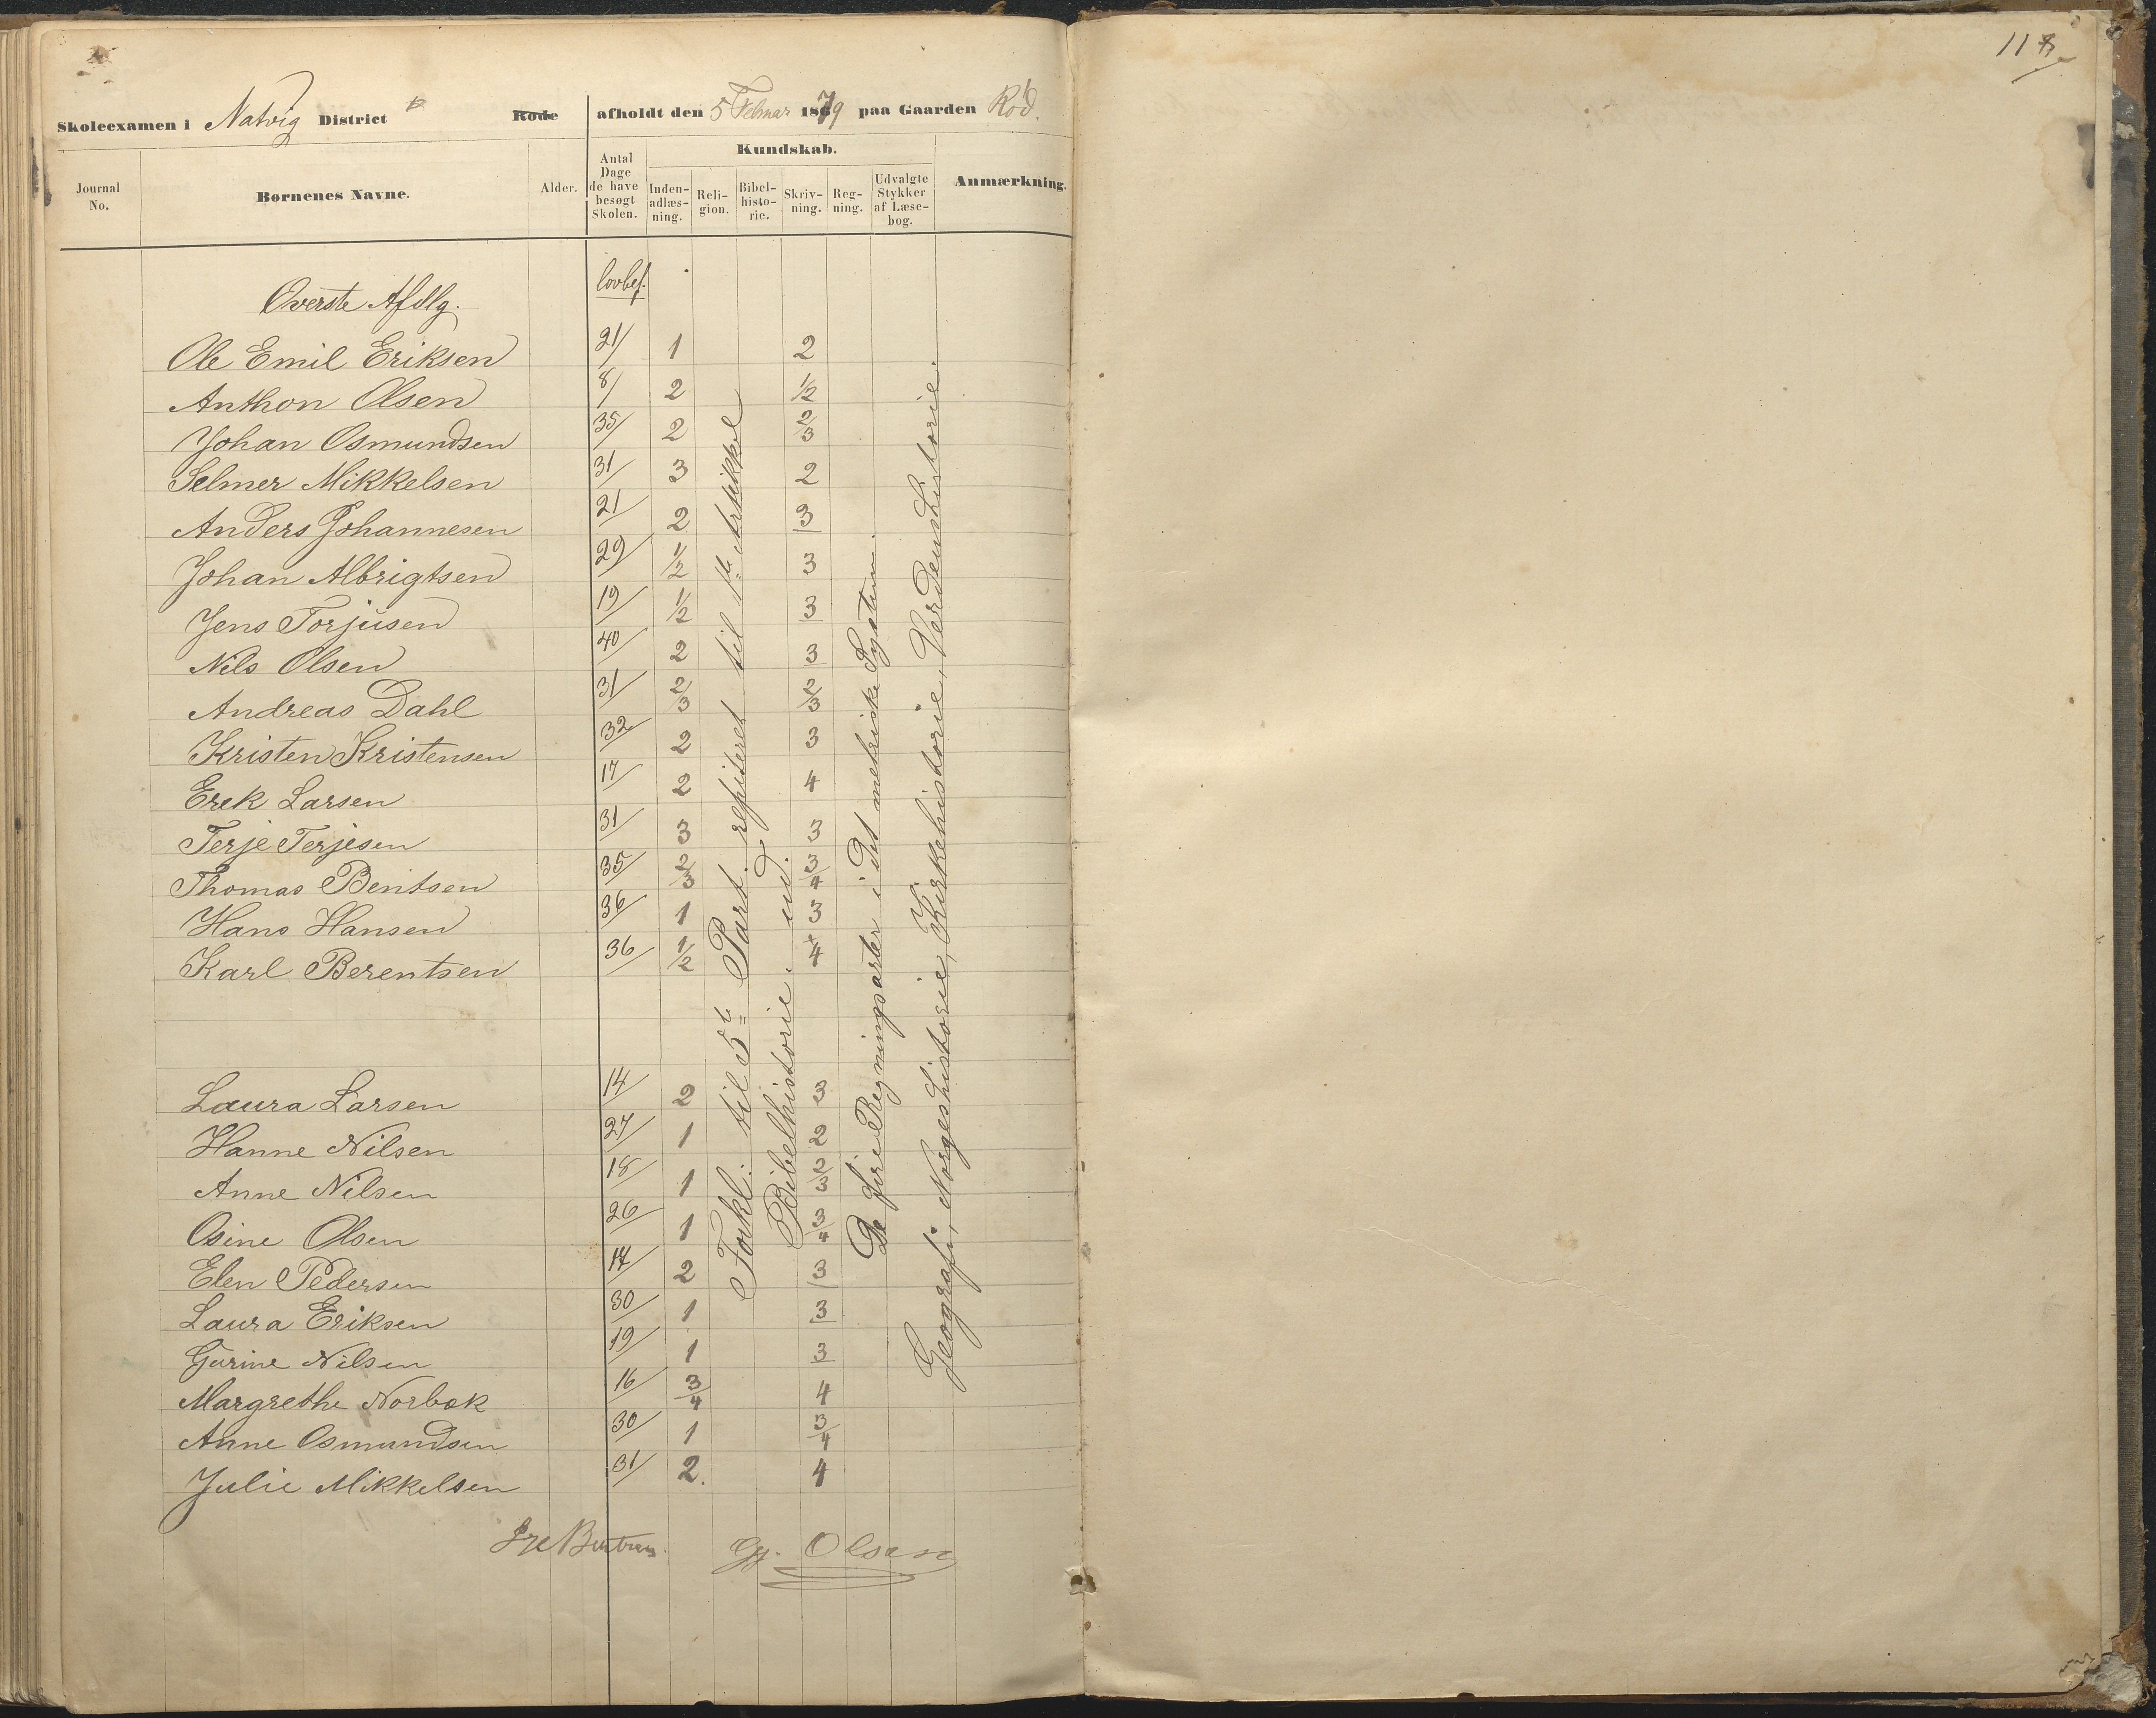 118
Skoleexamen i Natvig District Rode afholdt den 5 Februar 1879 paa Gaarden Rød.
Journal No.
Børnenes Navne.
Alder.
Antal Dage de have besøgt Skolen.
Kundskab.
Inden-adlæs-ning.
Reli-gion.
Bibel-histo-rie.
Skriv-ning.
Reg-ning.
Udvalgte Stykker af Læse-bog.
Anmærkning.
Øverste Afdlg. lovbef.
Ole Emil Eriksen 21/ 1 2
Anthon Olsen 8/ 2 1/2
Johan Osmundsen 35/ 2 2/3
Selmer Mikkelsen 31/ 3 2
Anders Johannesen 21/ 2 3
Johan Albrigtsen 29/ 1/2 3
Jens Torjusen 19/ 1/2 3
Nils Olsen 40/ 2 3
Andreas Dahl 31/ 2/3 2/3
Kristen Kristensen 32/ 2 3
Erek Larsen 17/ 2 4
Terje Terjesen 31/ 3 3
Thomas Bentsen 35/ 2/3 3/4
Hans Hansen 36/ 1 3
Karl Berentsen 36/ 1/2 4
Laura Larsen 14/ 2 3
Hanne Nilsen 27/ 1 2
Anne Nilsen 18/ 1 2/3
Osine Olsen 26/ 1 3/4
Elen Pedersen 17/ 2 3
Laura Eriksen 30/ 1 3
Gurine Nilsen 19/ 1 3
Margrethe Norbøk 16/ 3/4 4
Anne Osmundsen 30/ 1 3/4
Julie Mikkelsen 31/ 2. 4
Forkl: til 5te Part. repiteret til 1te Artikkel
Bibelhistorie. ud.
De fire Regningsarter i det metriske System.
Geografi, Norgeshistorie, Kirkehistorie, Verdenshistorie.
Gj. Olsen